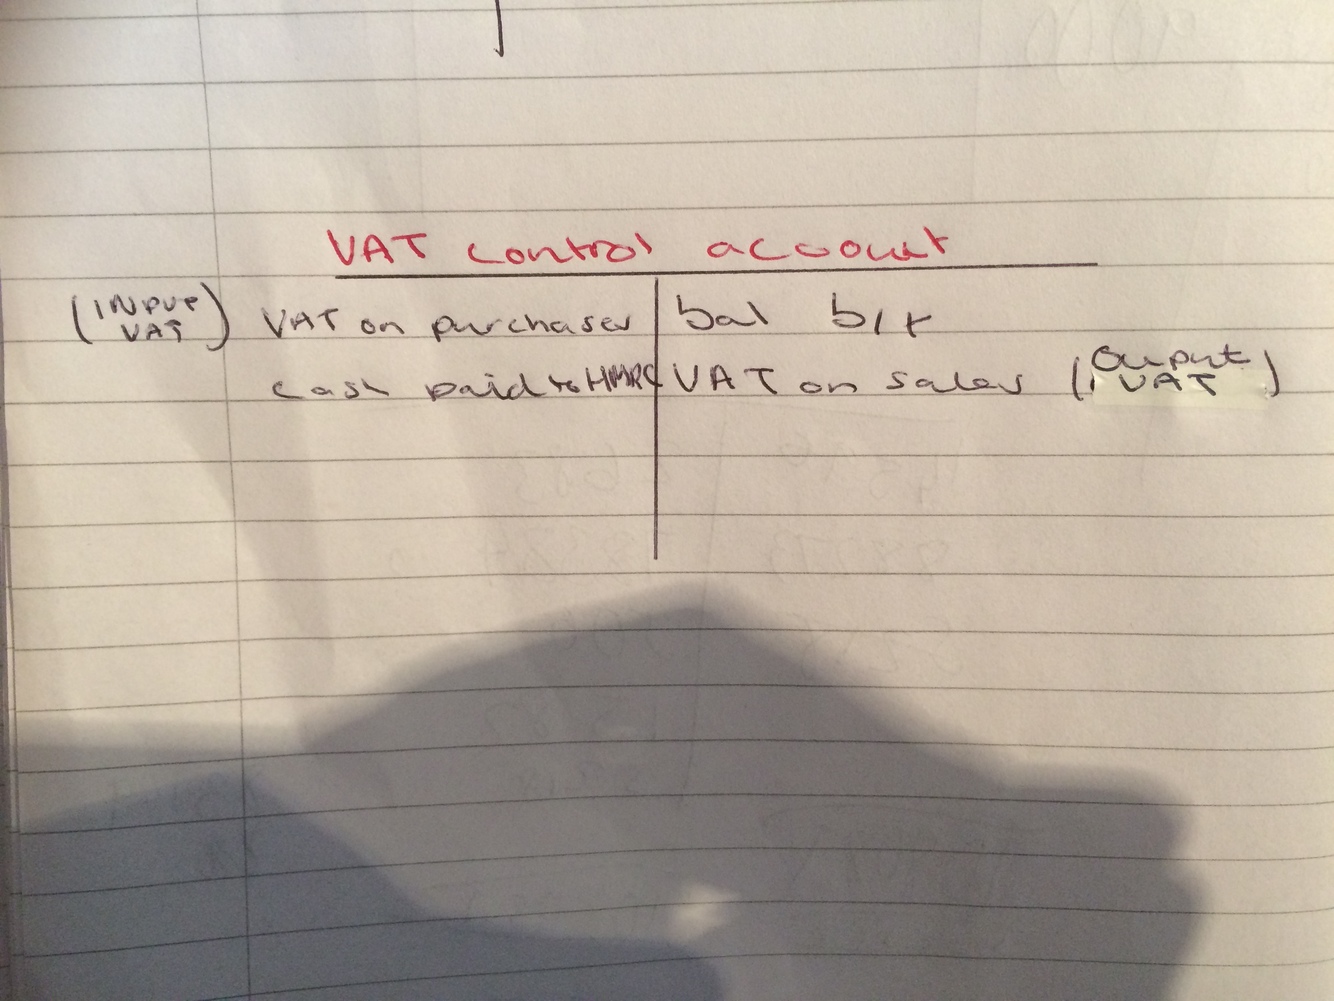 VAT control account
(INPUT VAT) VAT on purchases bal b/f
cash paid to HMRC VAT on sales (Output VAT)